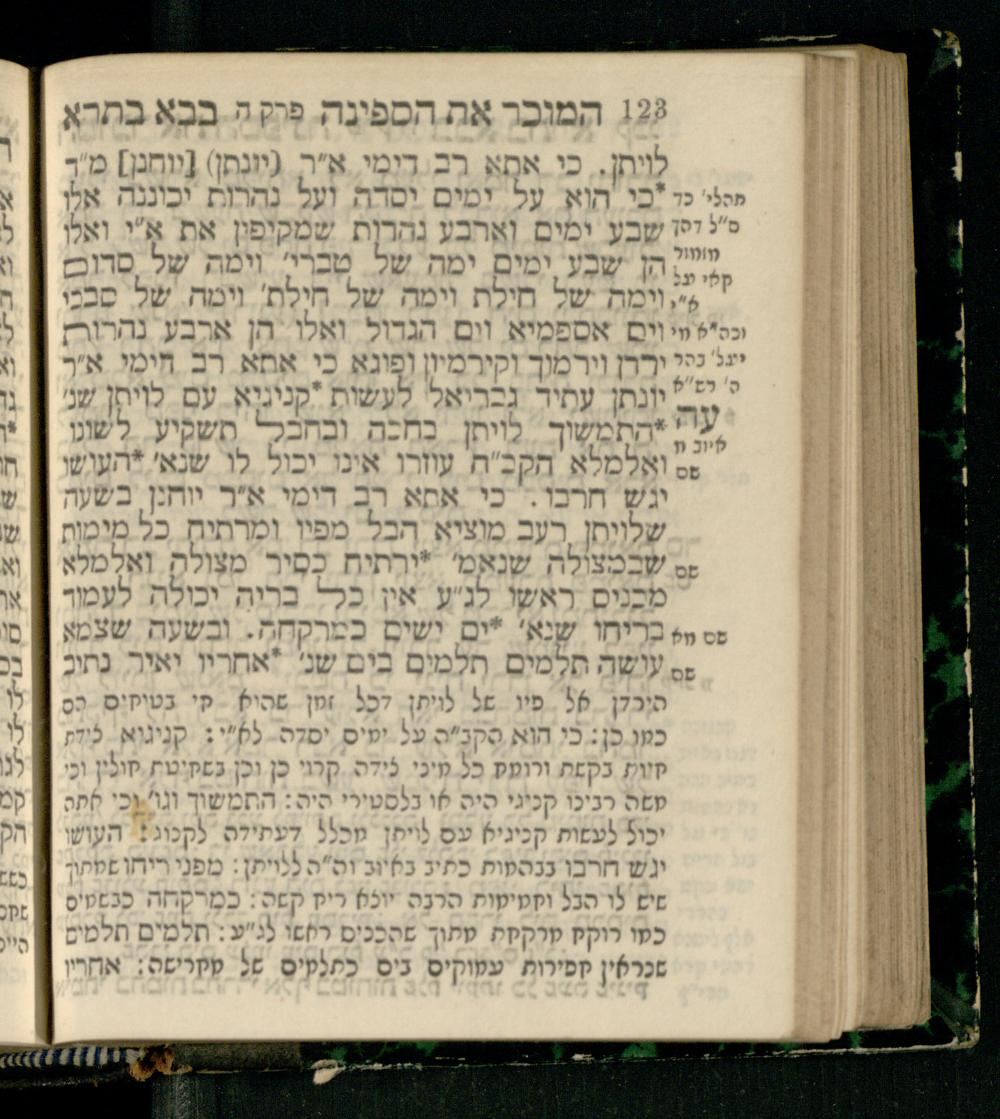 123 המוכר את הספינה פרק ה בבא בתרא
לויתן. כי אתא רב דימי א״ר (יונתן) [יוחנן] מ״ד
*כי הוא על ימים יסדה ועל נהרות יכוננה אלו
שבע ימים וארבע נהרות שמקיפין את א״י ואלו
הן שבע ימים ימה של טברי׳ וימה של סדום
וימה של חילת וימה של חילת׳ וימה של סבכי
וים אספמיא וים הגדול ואלו הן ארבע נהרות
ירדן וירמוך וקירמיון ופוגא כי אתא רב דימי א״ר
יונתן עתיד גבריאל לעשות *קניגיא עם לויתן שנ׳
*התמשוך לויתן בחכה ובחבל תשקיע לשונו
ואלמלא הקב״ה עוזרו אינו יכול לו שנא׳ *העושו
יגש חרבו. כי אתא רב דימי א״ר יוחנן בשעה
שלויתן רעב מוציא הבל מפיו ומרתיח כל מימות
שבמצולה שנאמ׳ *ירתיח כסיר מצולה ואלמלא
מכנים ראשו לג״ע אין כל בריה יכולה לעמוד
בריחו שנא׳ *ים ישים כמרקחה. ובשעה שצמא
עושה תלמים תלמים בים שנ׳ *אחריו יאיר נתיב
הירדן אל פיו של לויתן דכל זמן שהוא קי בטיקים הם
כמו כן: כי הוא הקב״ה על ימים יסדה לא״י: קניגיא לידת
חיות בקשת ורומח כל מיני לידה קרוי כן וכן בשחיטת חולין וכי
משה רבינו קניגי היה או בלסטירי היה: התמשוך וגו׳ וכי אתה
יכול לעשות קניגיא עם לויתן מכלל דעתידה לקנוג: העושו
יגש חרבו בבהמות כתיב באיוב וה״ה ללויתן: מפני ריחו שמתוך
שיש לו הבל וחמימות הרבה יוצא ריח קשה: כמרקחה כבשמים
כמו רוקח מרקחת מתוך שהכניס ראשו לג״ע: תלמים תלמים
שנראין חפירות עמוקים בים כתלמים של מחרישה: אחריו
תהלי׳ כד
ס״ל דהך
מזמור
קאי על
א״י
וכה״א מי
יעל׳ בהר
ה׳ רש״א
עה
איוב מ
שם
שם
שם מא
שם